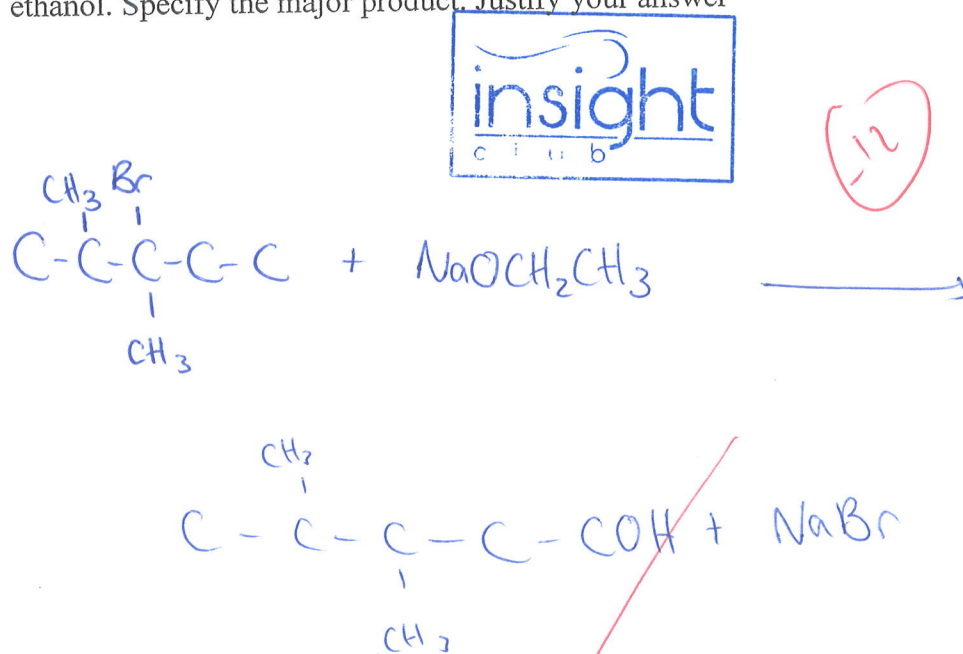 ethanol. Specify the major product. Justify your answer
insight
club
-12
CH3 Br
C-C-C-C-C + NaOCH2CH3
CH3
CH3
C-C-C-C-COH + NaBr
CH3